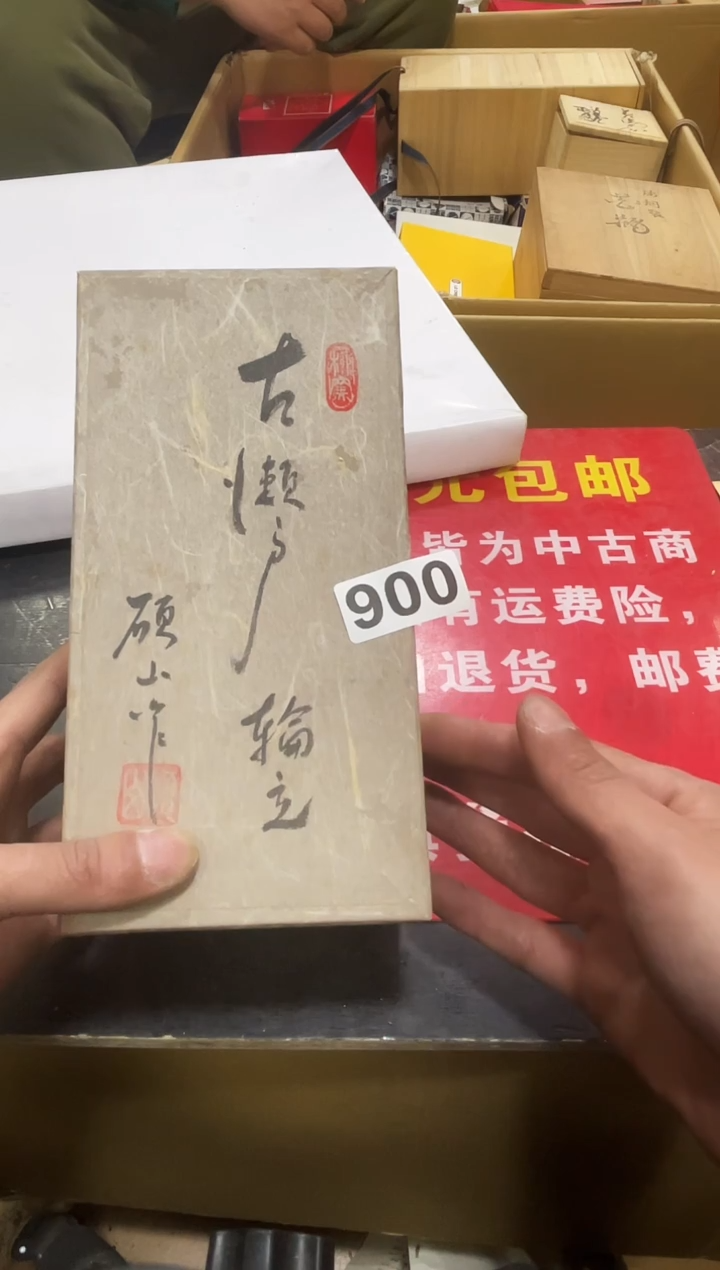 古瀬戸
輪立
碩山作
900
元包邮
皆为中古商
有运费险，
退货，邮费